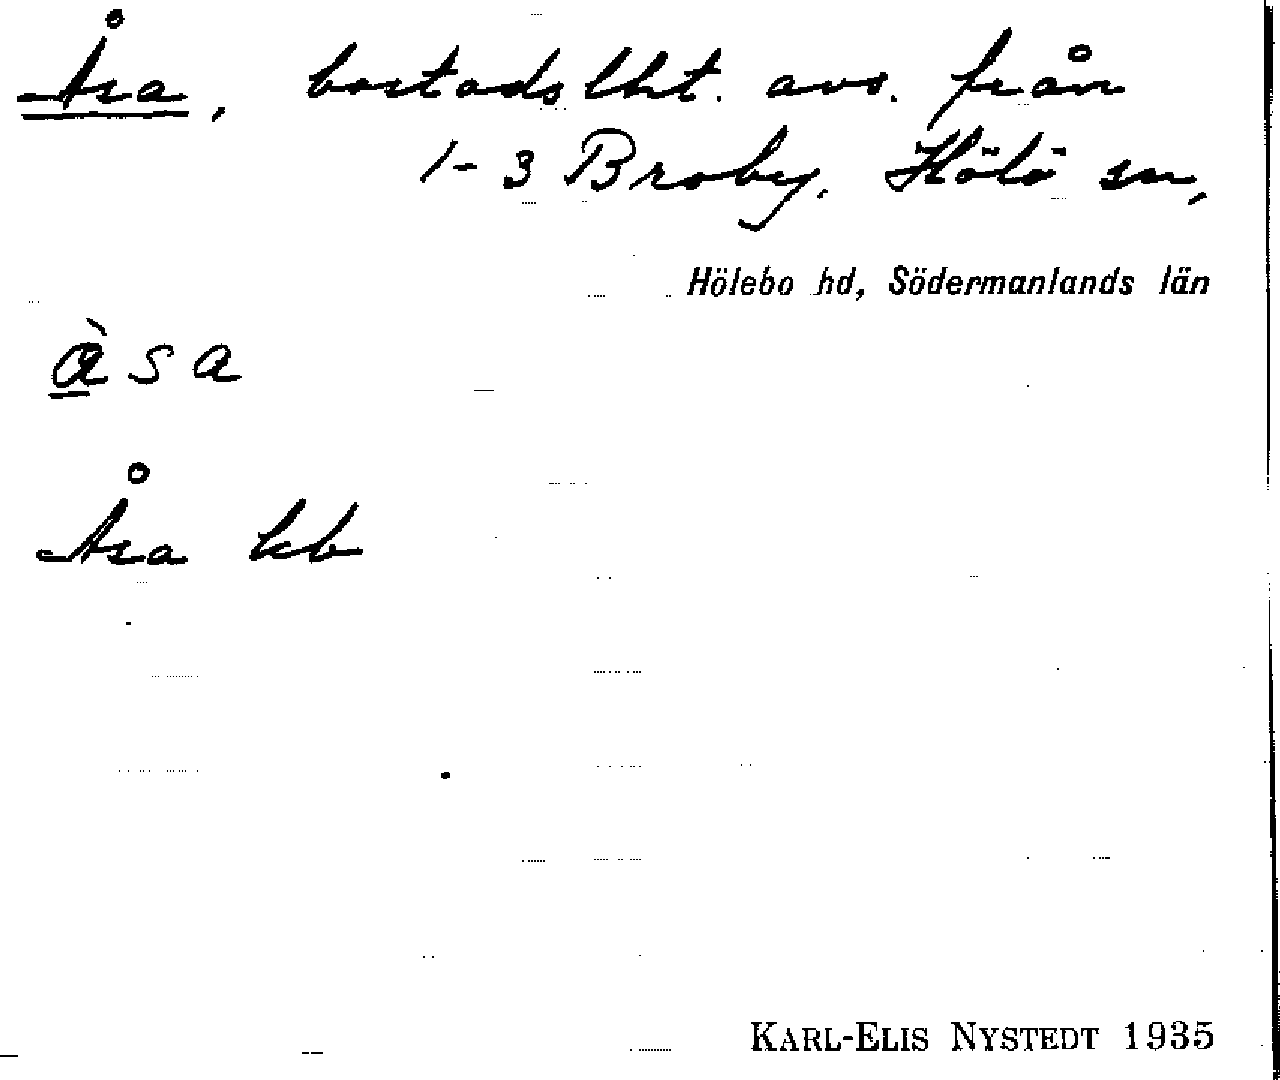 Åsa, bostadslht. avs. från
1-3 Broby. Hölö sn,
Hölebo hd, Södermanlands län
ὰ s a
Åsa kb
KARL-ELIS NYSTEDT 1935